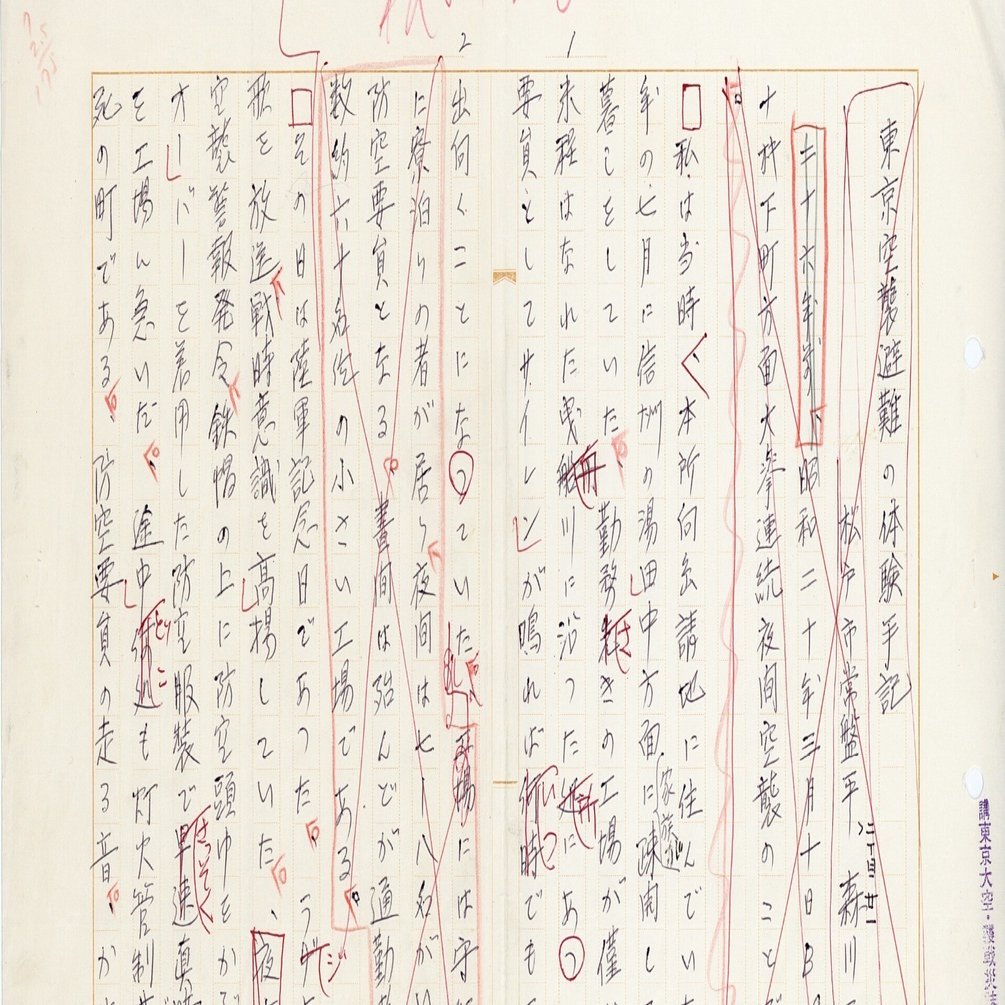 東京空襲避難の体験手記
松戸市常盤平二丁目 森川
三十六年前昭和二十年三月十日B
十牧下町方面大挙連続夜間空襲のことで
私は当時本所向島請地に住んでい
年の七月に信州の湯田中方面に家族疎開し
暮しをしていた 勤務先さきの工場が僅
未程はなれた曳舟川に沿った近所にあっ
要員としてサイレンが鳴れば何時いつでも
出向くことになっていた 工場には守
に寮泊りの者が居り夜間は七ー八名がい
防空要員となる 昼間は殆んどが通勤
数約六十名位の小さい工場である
その日は陸軍記念日であった ラヂジ
歌を放送戦時意識を高揚していた、夜
空襲警報発令鉄帽の上に防空頭巾をかぶ
オーバーを着用した防空服装で早速さっそく真
を工場へ急いだ 途中何処どこも灯火管制
死の町である 防空要員の走る音か
1
2
東京大空襲・戦災